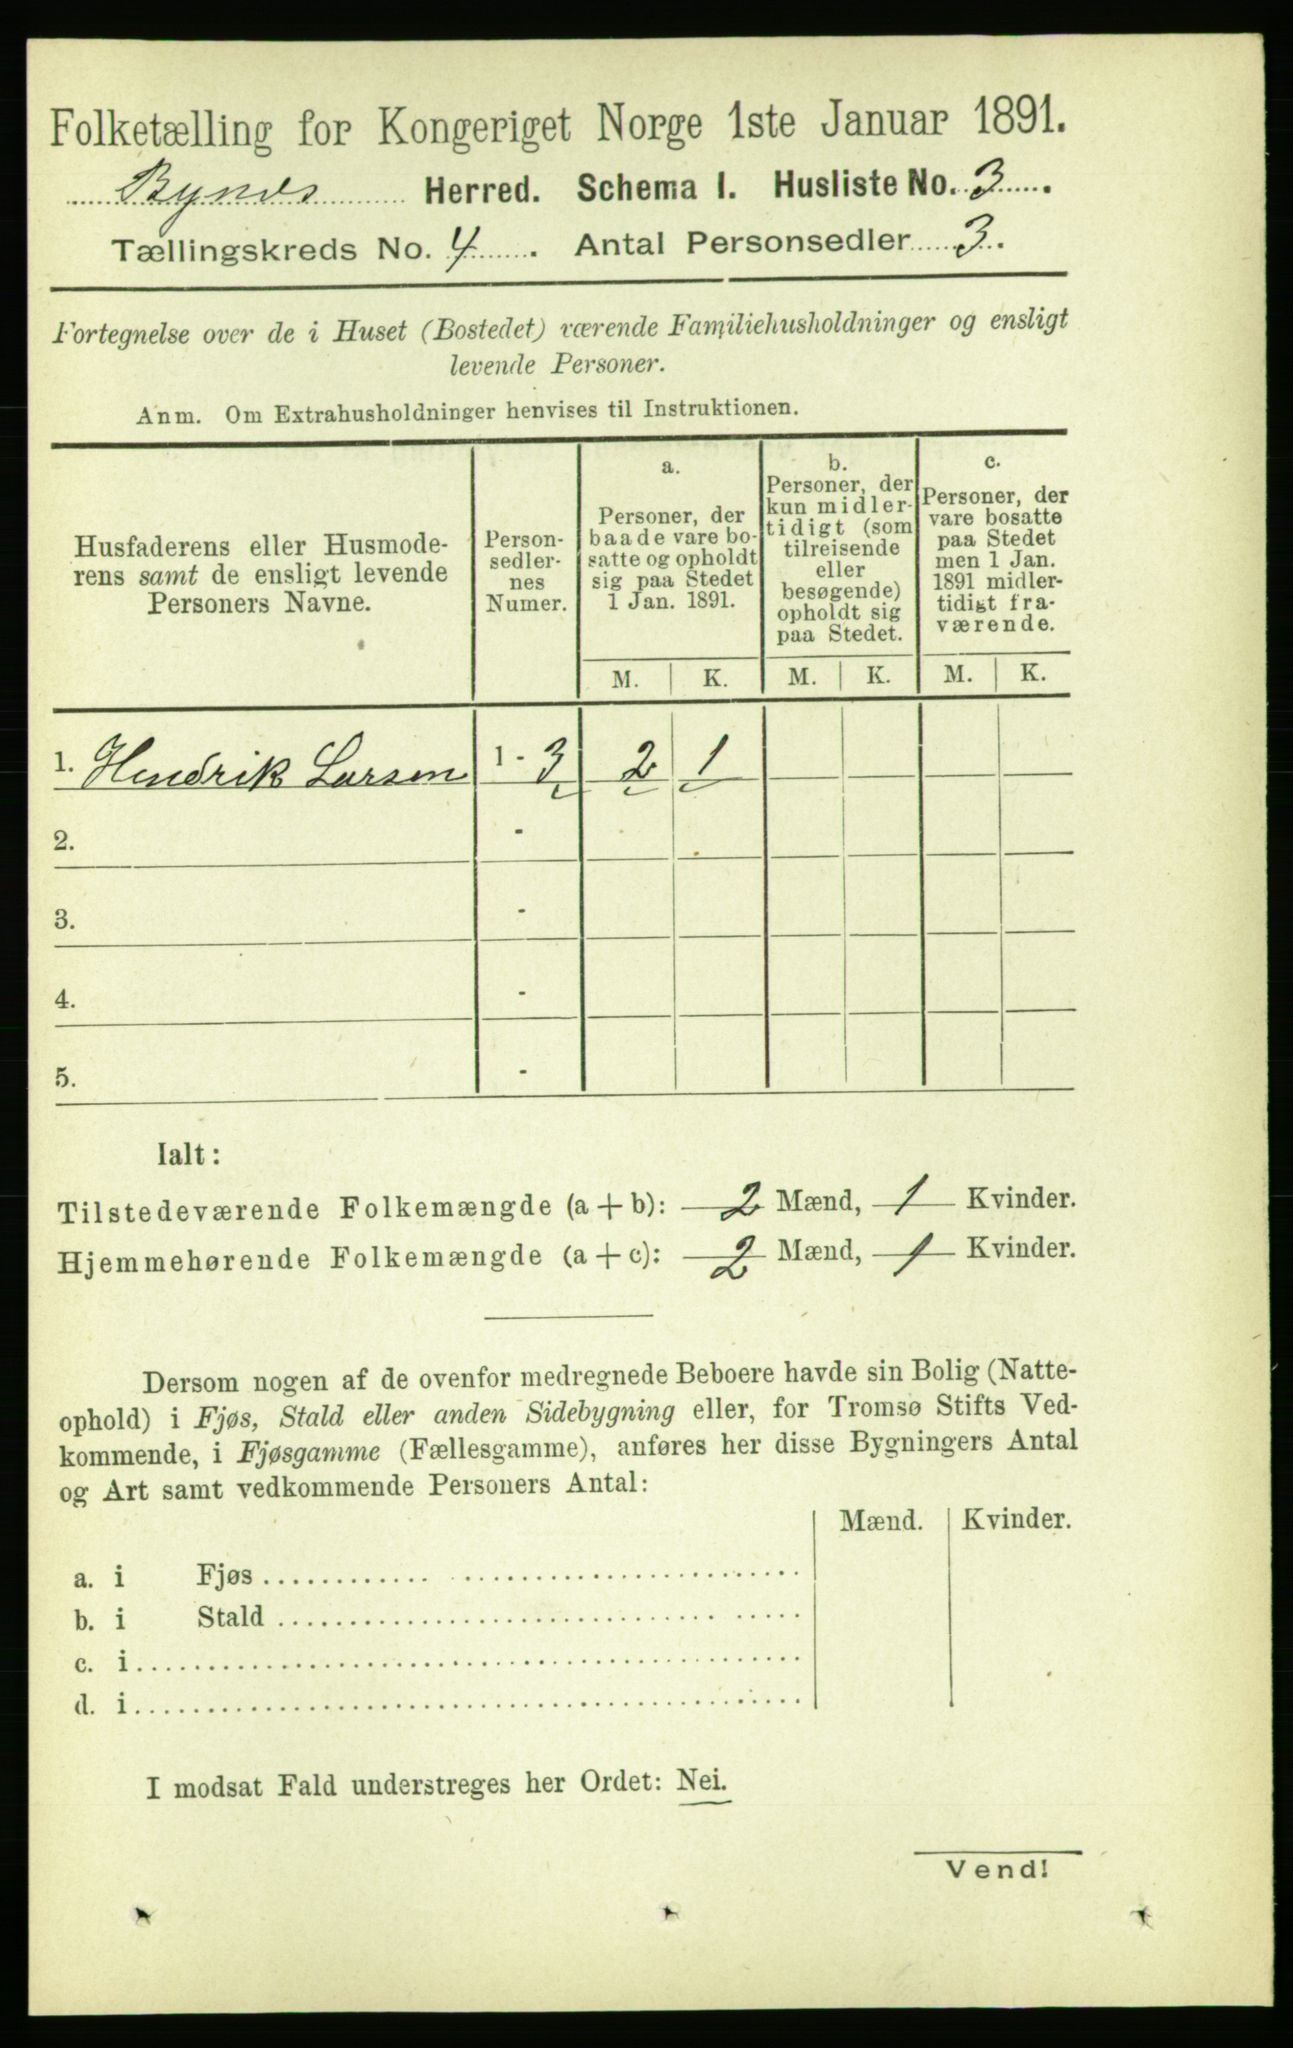 Folketælling for Kongeriget Norge 1ste Januar 1891.
Bynes Herred. Schema I. Husliste No. 3.
Tællingskreds No. 4. Antal Personsedler 3.
Fortegnelse over de i Huset (Bostedet) værende Familiehusholdninger og ensligt
levende Personer.
Anm. Om Extrahusholdninger henvises til Instruktionen.
Husfaderens eller Husmode-
rens samt de ensligt levende
Personers Navne.
Person-
sedler-
nes
Numer.
a.
Personer, der
baade vare bo-
satte og opholdt
sig paa Stedet
1 Jan. 1891.
b.
Personer, der
kun midler-
tidigt (som
tilreisende
eller
besøgende)
opholdt sig
paa Stedet.
c.
Personer, der
vare bosatte
paa Stedet
men 1 Jan.
1891 midler-
tidigt fra-
værende.
M. K. M. K. M. K.
1. Hendrik Larsen 1 - 3 2 1
2. -
3. -
4. -
5. -
Ialt:
Tilstedeværende Folkemængde (a + b): 2 Mænd, 1 Kvinder.
Hjemmehørende Folkemængde (a + c): 2 Mænd, 1 Kvinder.
Dersom nogen af de ovenfor medregnede Beboere havde sin Bolig (Natte-
ophold) i Fjøs, Stald eller anden Sidebygning eller, for Tromsø Stifts Ved-
kommende, i Fjøsgamme (Fællesgamme), anføres her disse Bygningers Antal
og Art samt vedkommende Personers Antal:
Mænd. Kvinder.
a. i Fjøs
b. i Stald
c. i
d. i
I modsat Fald understreges her Ordet: Nei.
Vend!